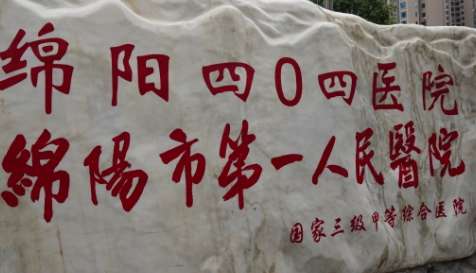 绵阳四0四医院
綿陽市第一人民醫院
国家三级甲等综合医院